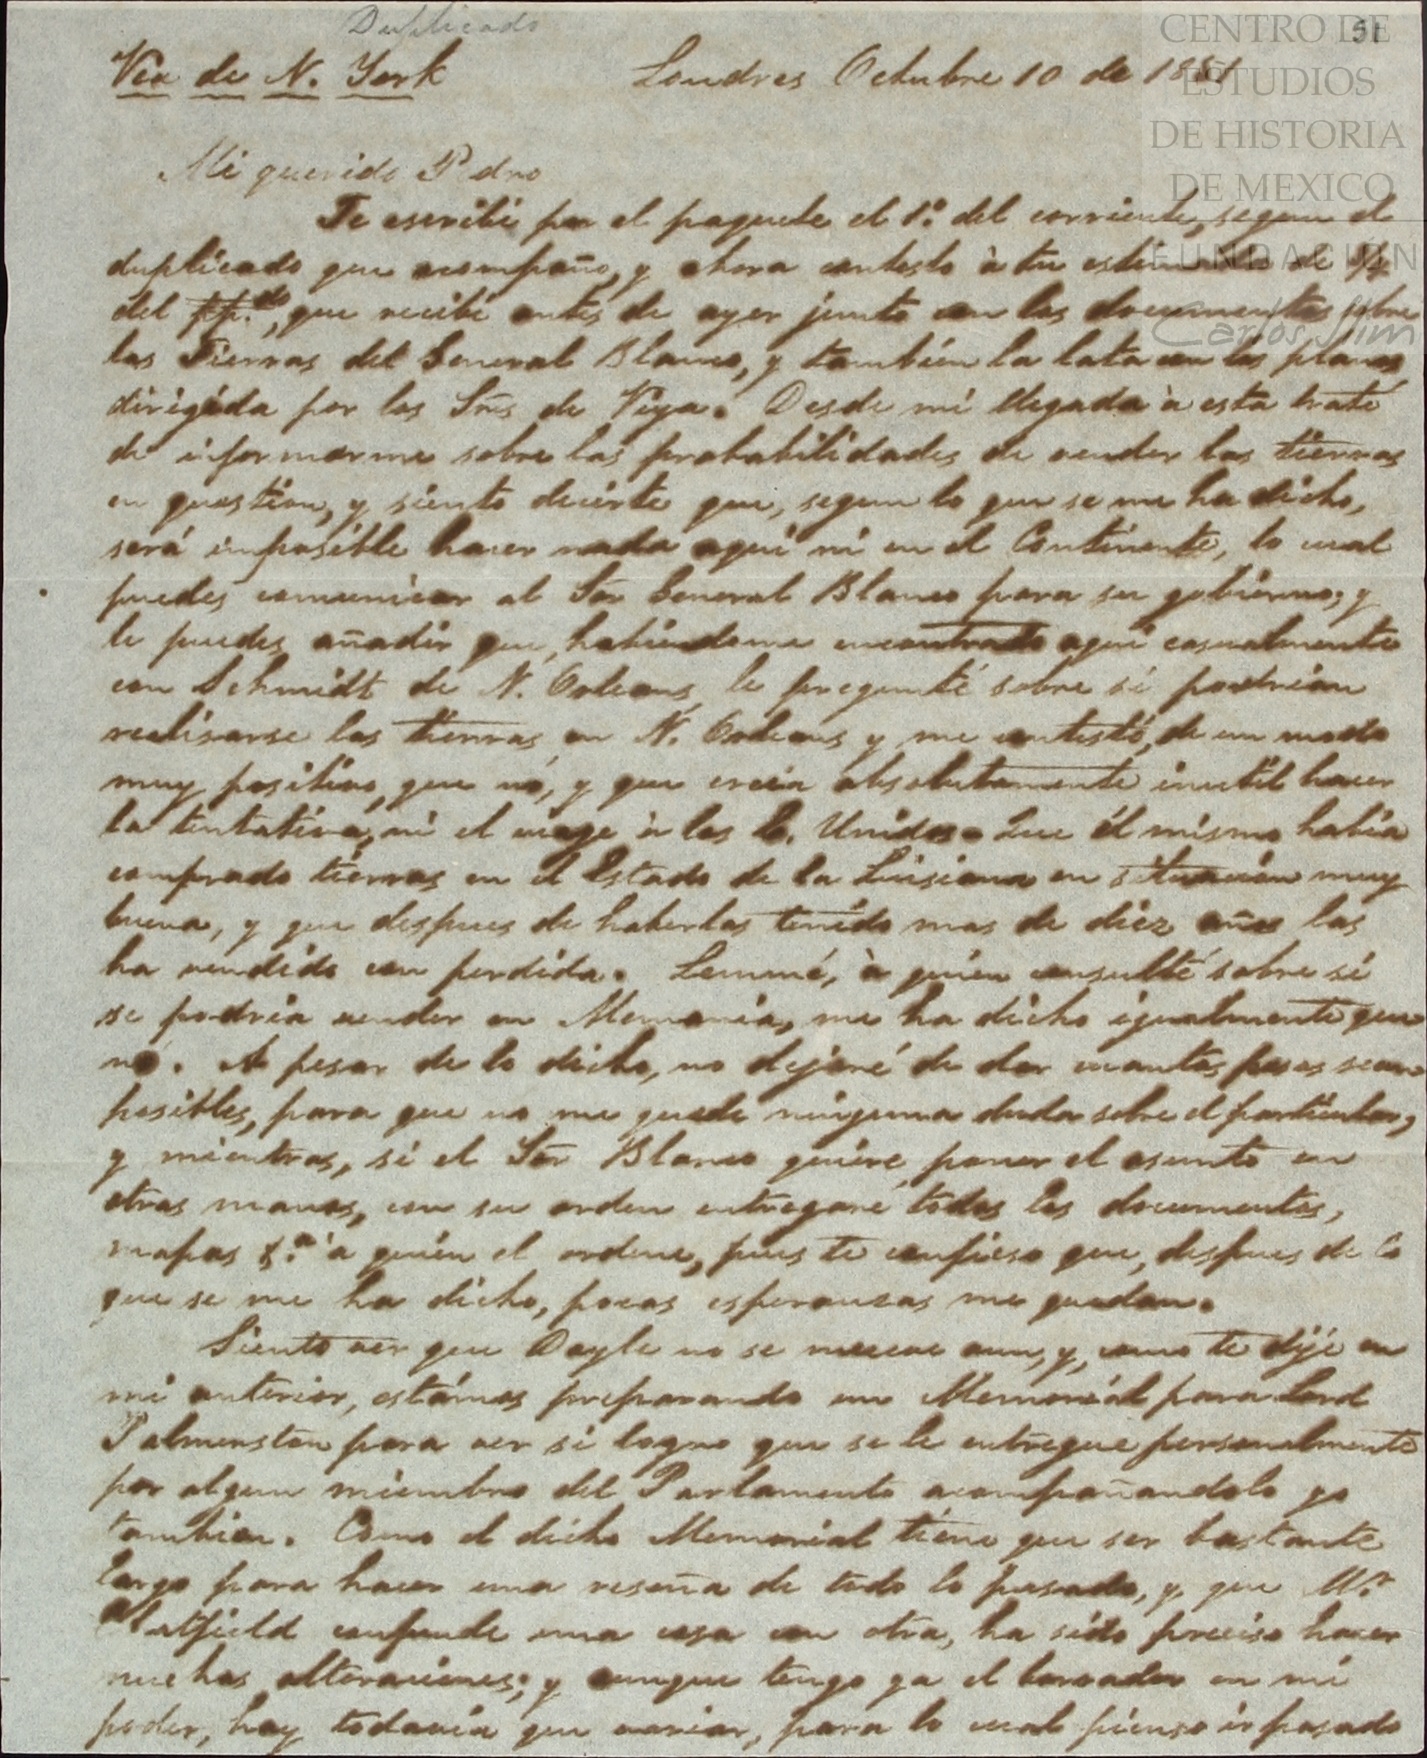 Duplicado
51
Via de N. York Londres Octubre 10 de 1851
CENTRO DE
ESTUDIOS
DE HISTORIA
DE MEXICO
FUNDACIÓN
Carlos Slim
Mi querido Pedro
Te escribi por el paquete el 1.º del corriente, segun el
duplicado que acompaño, y ahora contesto à tu estimada de
del pp.do, que recibi antes de ayer junto con los documentos sobre
las Tierras del General Blanco, y tambien la lata con los planos
dirigida por los Sres de Viya. Desde mi llegada à esta traté
de informarme sobre las probabilidades de vender las tierras
en question, y siento decirte que, segun lo que se me ha dicho,
será imposible hacer nada aqui ni en el Continente, lo cual
puedes comunicar al Sor General Blanco para su gobierno; y
le puedes añadir que, habiendome encontrado aqui casualmente
con Schmidt de N. Orleans, le pregunté sobre si podrian
realisarse las tierras en N. Orleans y me contestó, de un modo
muy positivo, que nó, y que creia absolutamente inutil hacer
la tentativa, ni el viage à los E. Unidos. Que él mismo habia
comprado tierras en el Estado de la Luisiana en situacion muy
buena, y que despues de haberlas tenido mas de diez años las
ha vendido con perdida. Lemmé, à quien consulté sobre si
se podria vender en Alemania, me ha dicho igualmente que
nó. A pesar de lo dicho, no dejaré de dar cuantos pasos sean
posibles, para que no me quede ninguna duda sobre el particular,
y mientras, si el Sor Blanco quiere poner el asunto en
otras manos, con su orden entregaré todos los documentos,
mapas &.a à quien el ordene, pues te confieso que, despues de lo
que se me ha dicho, pocas esperanzas me quedan.
Siento ver que Doyle no se mueve aun, y, como te dije en
mi anterior, estámos preparando un Memorial para Lord
Palmerston para ver si logro que se le entregue personalmente
por algun miembro del Parlamento acompañandolo yo
tambien. Como el dicho Memorial tiene que ser bastante
largo para hacer una reseña de todo lo pasado, y que Mr.
Hatfield confunde una cosa con otra, ha sido preciso hacer
muchas alteraciones; y aunque tengo ya el borrador en mi
poder, hay todavia que variar, para lo cual pienso ir pasado